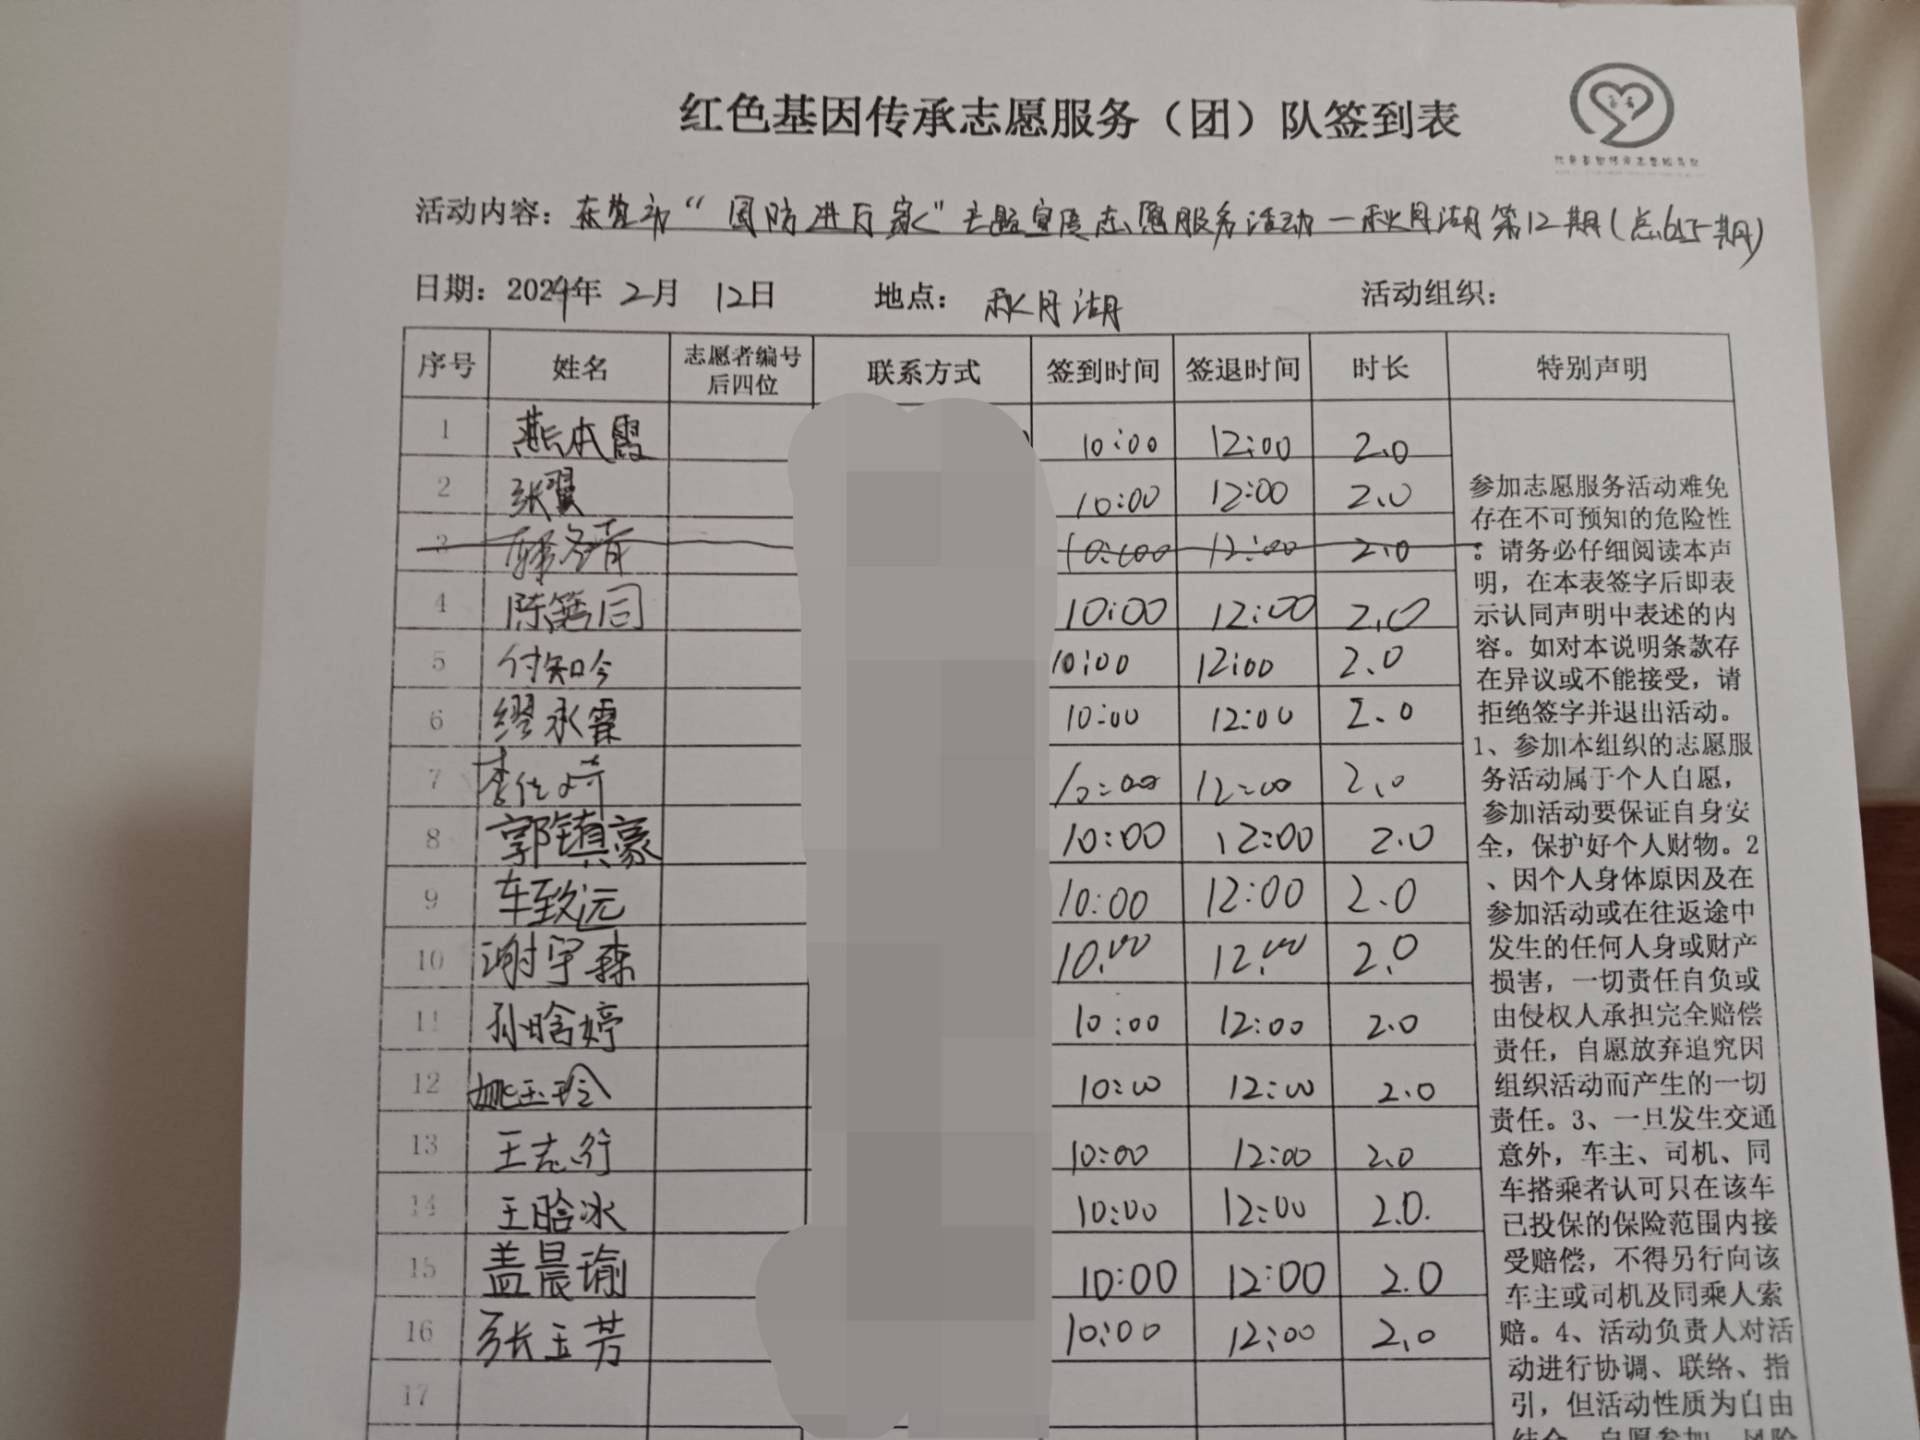 红色基因传承志愿服务（团）队签到表
活动内容：东营市“国防进万家”主题宣传志愿服务活动—秋月湖第12期(总615期)
日期：2024年 2月 12日 地点：秋月湖 活动组织：
序号 姓名 志愿者编号后四位 联系方式 签到时间 签退时间 时长 特别声明
1 燕本霞 10:00 12:00 2.0
2 张翼 10:00 12:00 2.0
3 10:00 12:00 2.0
4 陈 同 10:00 12:00 2.0
5 付知今 10:00 12:00 2.0
6 缪永霖 10:00 12:00 2.0
7 李佳 10:00 12:00 2.0
8 郭镇豪 10:00 12:00 2.0
9 车致远 10:00 12:00 2.0
10 谢宇森 10:00 12:00 2.0
11 孙晗婷 10:00 12:00 2.0
12 姚玉玲 10:00 12:00 2.0
13 王志行 10:00 12:00 2.0
14 王晗冰 10:00 12:00 2.0.
15 盖晨瑜 10:00 12:00 2.0
16 张玉芳 10:00 12:00 2.0
17
参加志愿服务活动难免
存在不可预知的危险性
：请务必仔细阅读本声
明，在本表签字后即表
示认同声明中表述的内
容。如对本说明条款存
在异议或不能接受，请
拒绝签字并退出活动。
1、参加本组织的志愿服
务活动属于个人自愿，
参加活动要保证自身安
全，保护好个人财物。2
、因个人身体原因及在
参加活动或在往返途中
发生的任何人身或财产
损害，一切责任自负或
由侵权人承担完全赔偿
责任，自愿放弃追究因
组织活动而产生的一切
责任。3、一旦发生交通
意外，车主、司机、同
车搭乘者认可只在该车
已投保的保险范围内接
受赔偿，不得另行向该
车主或司机及同乘人索
赔。4、活动负责人对活
动进行协调、联络、指
引，但活动性质为自由
结合、自愿参加、风险